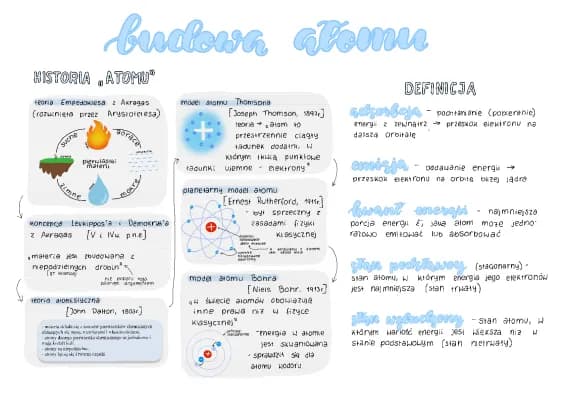 budowa atomu
HISTORIA „ATOMU"
teoria Empedoklesa z Akragas
(rozwinięta przez Arystotelesa)
suche
gorące
pierwiastki
materii
zimne
mokre
koncepcja Leukippos'a i Demokryt'a
z Akragas [V i IVw. p.n.e]
„materia jest zbudowana z
niepodzielnych drobin"
teoria atomistyczna
[John Dalton, 1808r]
model atomu Thomsona
[Joseph Thomson, 1897r]
teoria → „atom to
przestrzennie ciągły
ładunek dodatni, w
którym tkwią punktowe
ładunki ujemne - elektrony"
planetarny model atomu
[Ernest Rutherford, 1911r]
- był sprzeczny z
zasadami fizyki
klasycznej
model atomu Bohra
[Niels Bohr, 1913r]
„w świecie atomów obowiązują
inne prawa niż w fizyce
klasycznej"
- energia w atomie
jest skwantowana
- sprawdził się dla
atomu wodoru
DEFINICJA
adsorbcja - pochłanianie (pobieranie)
energii z zewnątrz → przeskok elektronu na
dalszą orbitalę
emisja - oddawanie energii →
przeskok elektronu na orbitę bliżej jądra
kwant energii - najmniejsza
porcja energii E, jaką atom może jedno-
razowo emitować lub absorbować
stan podstawowy (stacjonarny) -
stan atomu, w którym energia jego elektronów
jest najmniejsza (stan trwały)
stan wzbudzony - stan atomu, w
którym wartość energii jest większa niż w
stanie podstawowym (stan nietrwały)